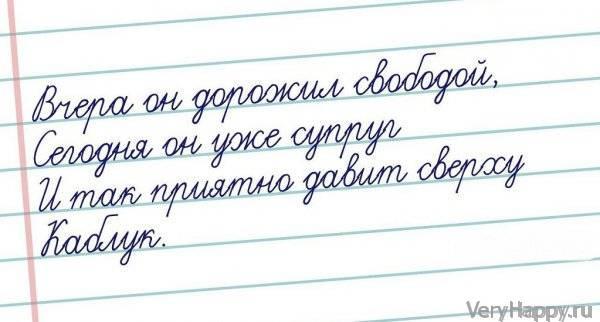 Вчера он дорожил свободой,
Сегодня он уже супруг
И так приятно давит сверху
Каблук.
VeryHappy.ru